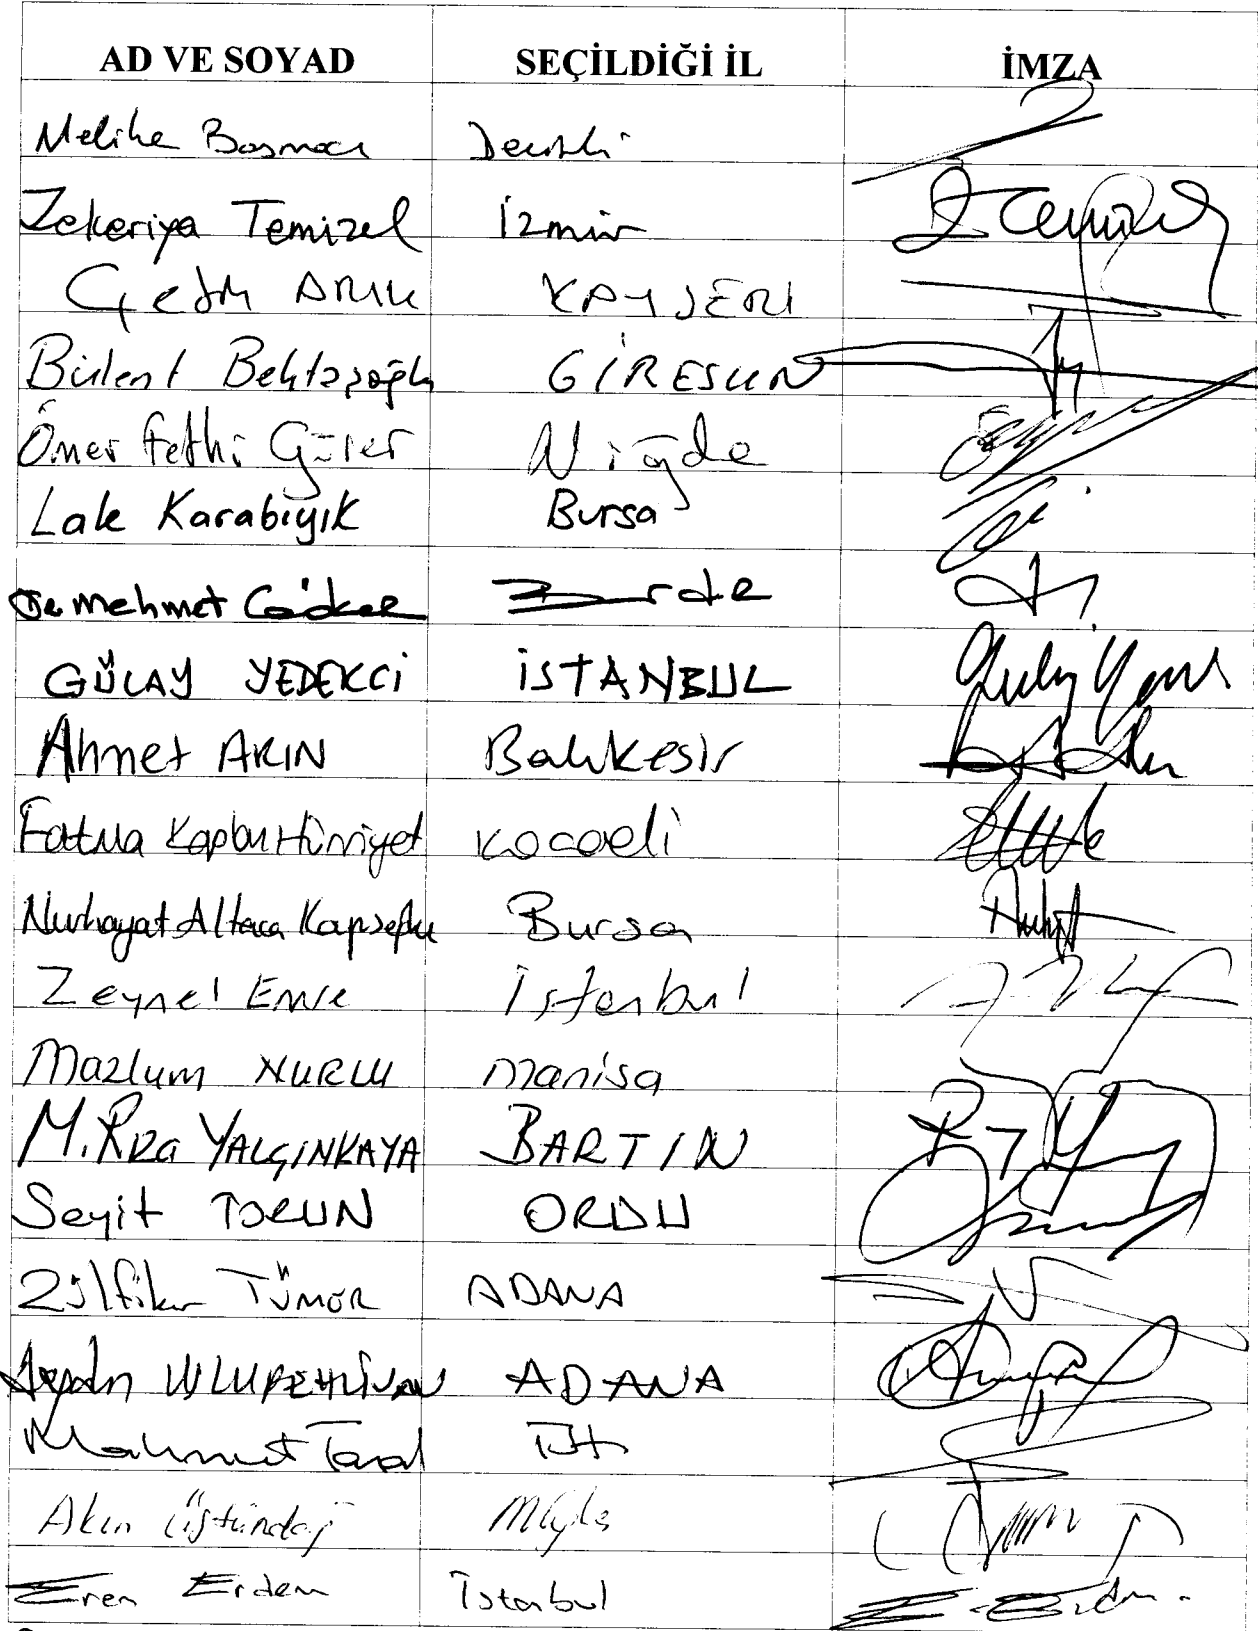 AD VE SOYAD SEÇİLDİĞİ İL İMZA
Melike Basmacı Denizli
Zekeriya Temizel İzmir
Çetin ARIK KAYSERİ
Bülent Bektaşoğlu GİRESUN
Ömer Fethi Gürer Niğde
Lale Karabıyık Bursa
Mehmet Göker Burdur
GÜLAY YEDEKCİ İSTANBUL
Ahmet AKIN Balıkesir
Fatma Kaplan Hürriyet Kocaeli
Nurhayat Altaca Kayışoğlu Bursa
Zeynel Emre İstanbul
Mazlum NURLU Manisa
M. Rıza YALÇINKAYA BARTIN
Seyit TORUN ORDU
Zülfikar TÜMOR ADANA
Aydın ULUPEHLİVAN ADANA
Mahmut Tanal İst
Akın Üstündağ Muğla
Eren Erdem İstanbul E. Erdem